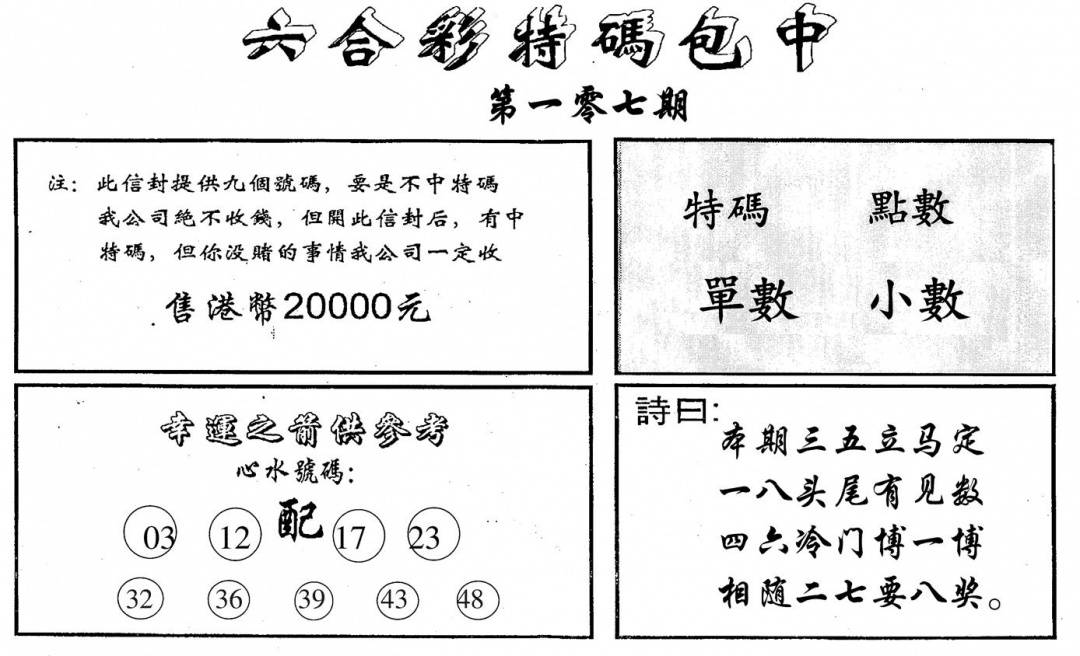 六合彩特碼包中
第一零七期
注：此信封提供九個號碼，要是不中特碼
我公司絕不收錢，但開此信封后，有中
特碼，但你没賭的事情我公司一定收
售港幣20000元
特碼 點數
單數 小數
幸運之箭供參考
心水號碼：
配
03 12 17 23
32 36 39 43 48
詩曰：
本期三五立马定
一八头尾有见数
四六冷门博一博
相随二七要八奖。